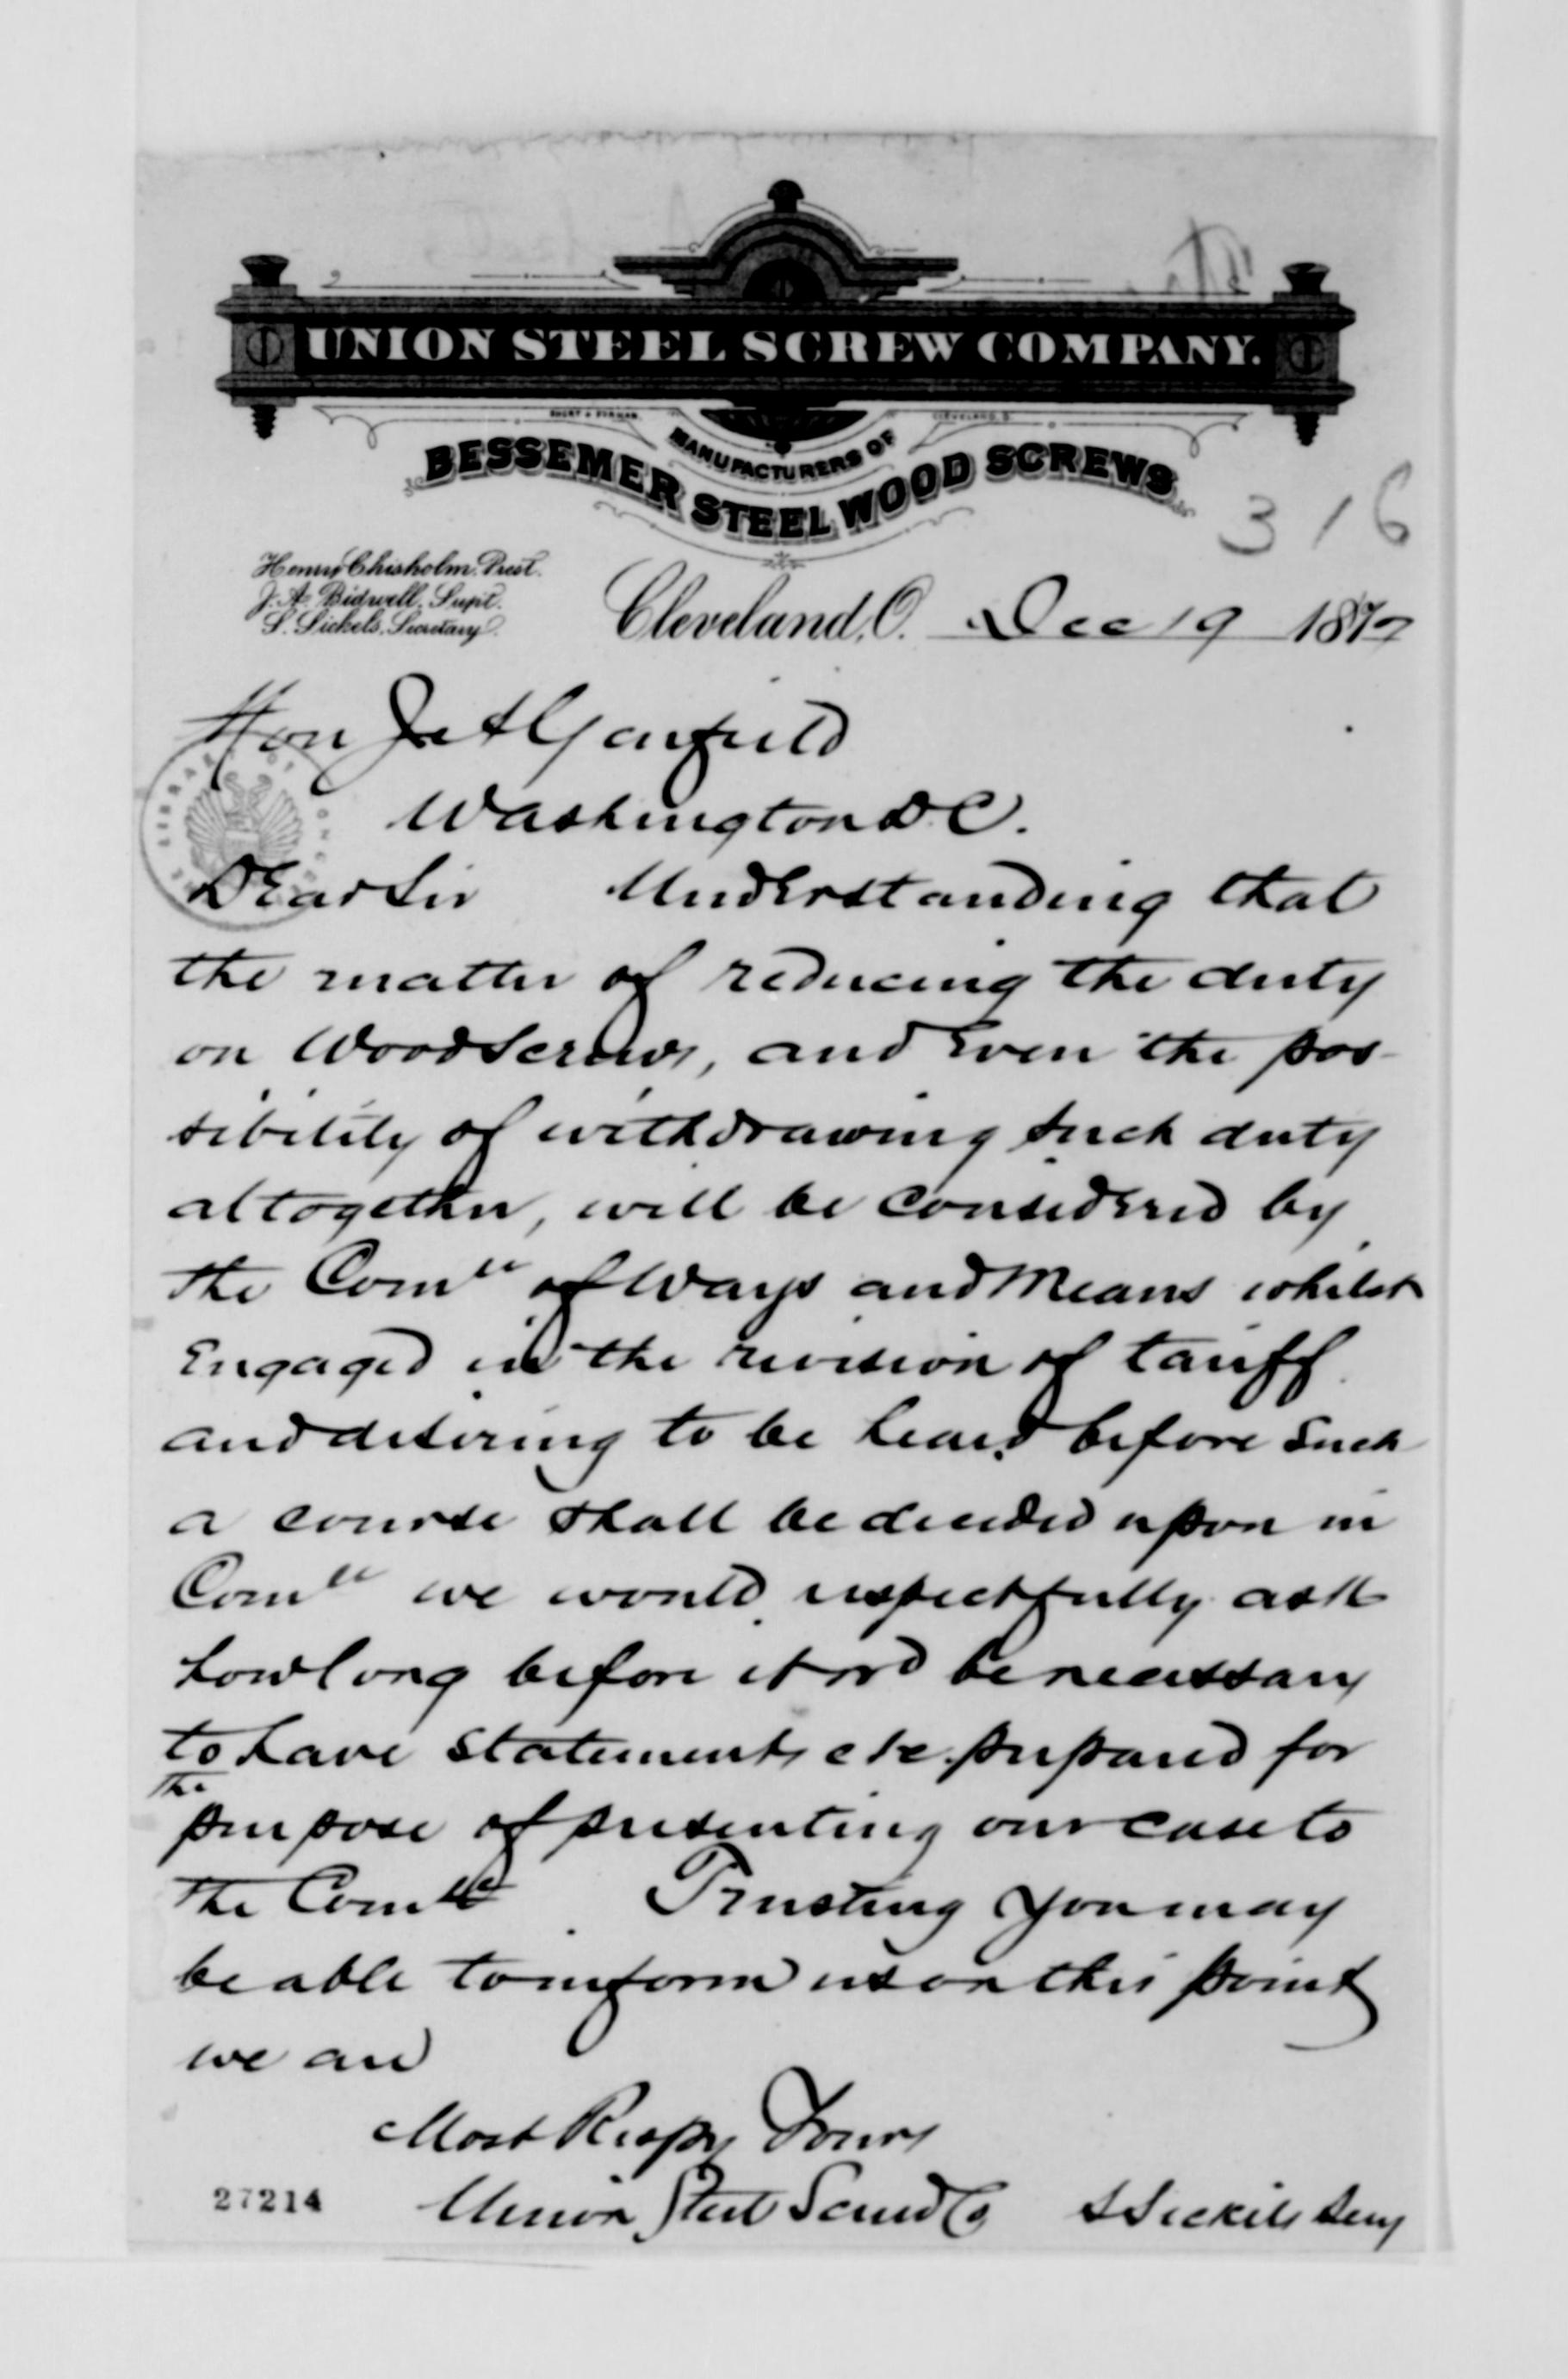 UNION STEEL SCREW COMPANY.
SHORT & FORMAN CLEVELAND, O.
MANUFACTURERS OF
BESSEMER STEEL WOOD SCREWS
316
Henry Chisholm. Prest.
J. A. Bidwell, Supt.
S. Sickels, Secretary.
Cleveland, O. Dec 19 1877
Hon Jas A Garfield
Washington D.C.
Dear Sir Understanding that
the matter of reducing the duty
on Wood Screws, and even the pos-
sibility of withdrawing such duty
altogether, will be considered by
the Comtee of Ways and Means whilst
Engaged in the revision of tariff
and desiring to be heard before such
a course shall be decided upon in
Comtee we would respectfully ask
how long before it wd be necessary
to have statements etc. prepared for
the
purpose of presenting our case to
the Comtee Trusting you may
be able to inform us on this point
we are
Most Respy Yours
27214 Union Steel Screw Co S Sickels Secy